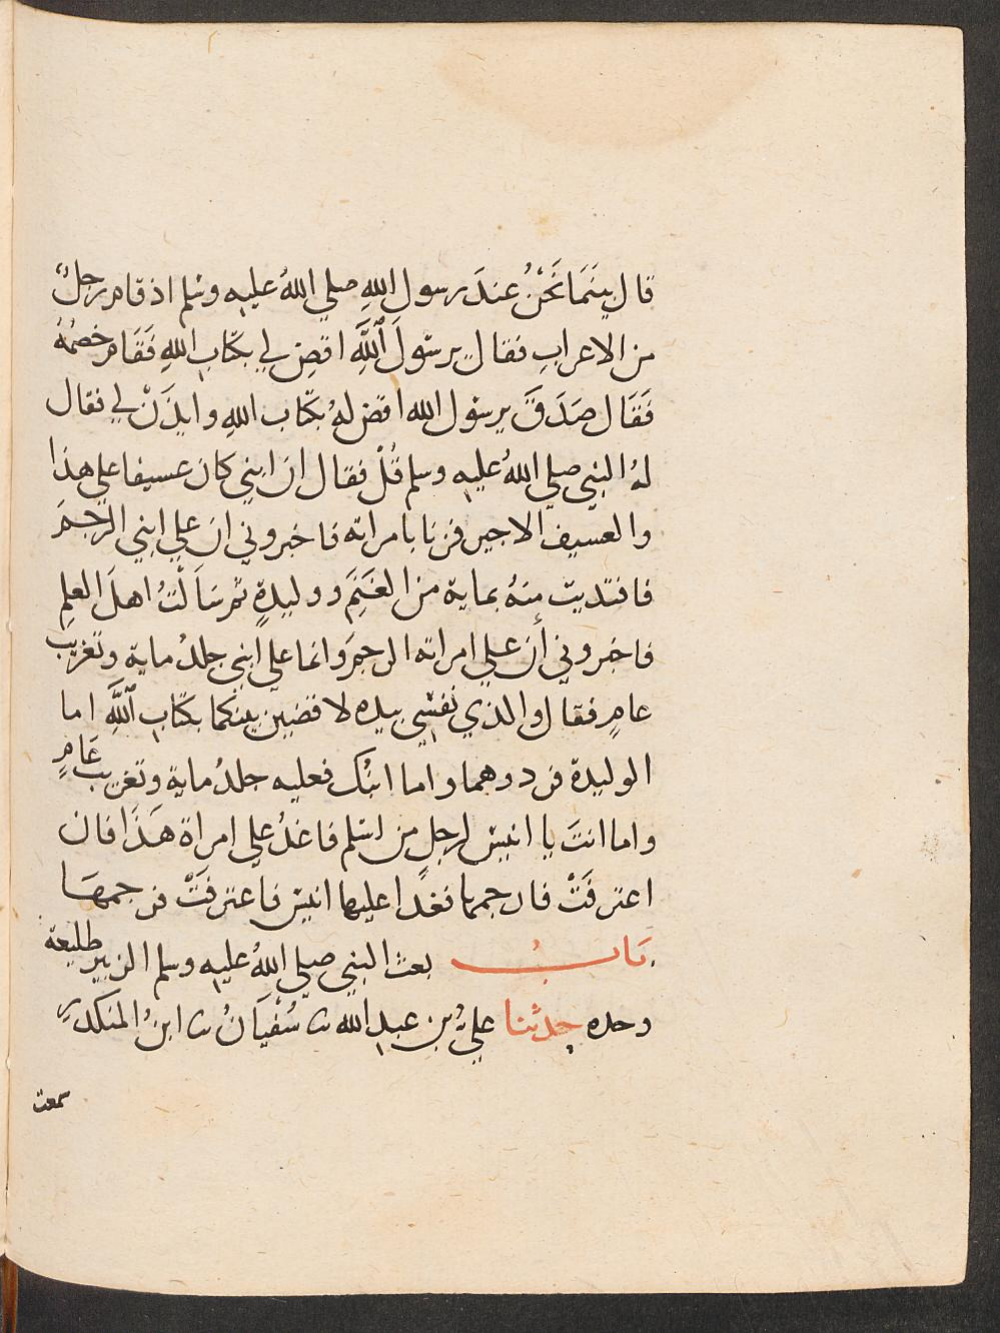 قال بينَمَا نَحْنُ عندَ رسول اللهِ صلي اللهُ عليهِ وسلم اذ قام رجلٌ
من الاعرابِ فقال يرسولَ ٱللَّهِ اقضِ لي بكتابِ اللهِ فَقَام خصْمُهُ
فَقَال صَدَقَ يرسول الله اقض لهُ بكتاب اللهِ وايذَنْ لي فقال
لهُ النبي صلي اللهُ عليهِ وسلم قُلْ فقال ان ابني كان عسيفا علي هذا
والعسيف الاجير فزنا بامراته فاخبروني ان علي ابني الرَّجمَ
فافتديت منهُ بماية من الغَنَمِ ووليدةٍ ثم سَاَلْتُ اهلَ العلمِ
فاخبروني أن علي امراته الرجمَ وانما علي ابني جلدُ ماية وتغريب
عامٍ فقال والذي نفسِي بيده لاقضين بينكما بكتابِ ٱللَّهِ اما
الوليدة فردوهما واما ابنُك فعليه جلدُ ماية وتغريب عَامٍ
واما انتَ يا انيس لرجلٍ من اسلم فاغدُ علي امراة هَذَا فان
اعترفَتْ فارجمها فغدا عليها انيس فاعترفَتْ فرجمهَا
بَابُ بعث النبي صلي اللهُ عليهِ وسلم الزبير طليعة
وحده حدثنا عليُّ بن عبدِ الله ثنا سُفْيَانُ ثنا ابنُ المنكدرِ
سمعت